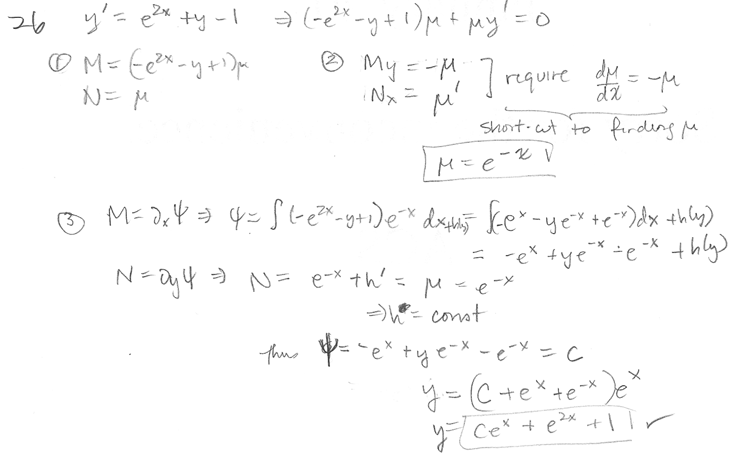 26 y' = e^{2x} + y - 1 ⇒ (-e^{2x} - y + 1)μ + μy' = 0
① M = (-e^{2x} - y + 1)μ ② My = -μ ] require dμ/dx = -μ
N = μ Nx = μ'
short-cut to finding μ
μ = e^{-x} √
③ M = ∂xΨ ⇒ Ψ = ∫(-e^{2x} - y + 1)e^{-x} dx + h(y) = ∫(-e^x - ye^{-x} + e^{-x})dx + h(y)
= -e^x + ye^{-x} - e^{-x} + h(y)
N = ∂yΨ ⇒ N = e^{-x} + h' = μ = e^{-x}
⇒ h = const
thus Ψ = -e^x + ye^{-x} - e^{-x} = C
y = (C + e^x + e^{-x})e^x
y = Ce^x + e^{2x} + 1 ✓